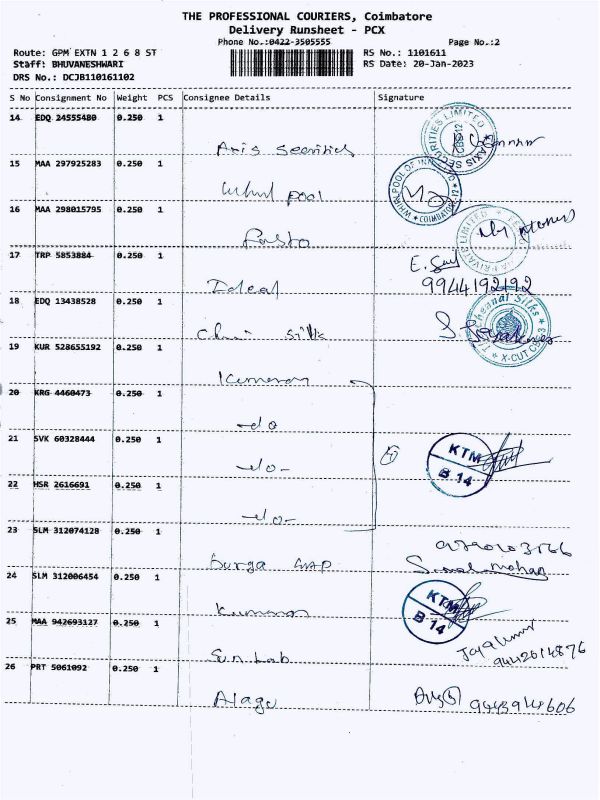 THE PROFESSIONAL COURIERS, Coimbatore
Delivery Runsheet - PCX
Phone No.:0422-3505555 Page No.:2
Route: GPM EXTN 1 2 6 8 ST RS No.: 1101611
Staff: BHUVANESHWARI RS Date: 20-Jan-2023
DRS No.: DCJB110161102
S No Consignment No Weight PCS Consignee Details Signature
14 EDQ 24555480 0.250 1
Axis Securities
AXIS SECURITIES LIMITED
CBS-12
15 MAA 297925283 0.250 1
Whirl pool
WHIRLPOOL OF INDIA LTD
COIMBATORE-12
16 MAA 298015795 0.250 1
PRIVATE LIMITED
17 TRP 5853884 0.250 1
Ideal
9944192192
18 EDQ 13438528 0.250 1
Chennai Silk
The Chennai Silks
X-CUT CBE-3
19 KUR 528655192 0.250 1
Kumaran
20 KRG 4460473 0.250 1
-do
21 SVK 60328444 0.250 1
-do-
KTM
B 14
22 HSR 2616691 0.250 1
-do-
23 SLM 312074128 0.250 1
Durga
24 SLM 312006454 0.250 1
Kumaran
KTM
B 14
25 MAA 942693127 0.250 1
Sun Lab
9442614876
26 PRT 5061092 0.250 1
Alagu
9443914606